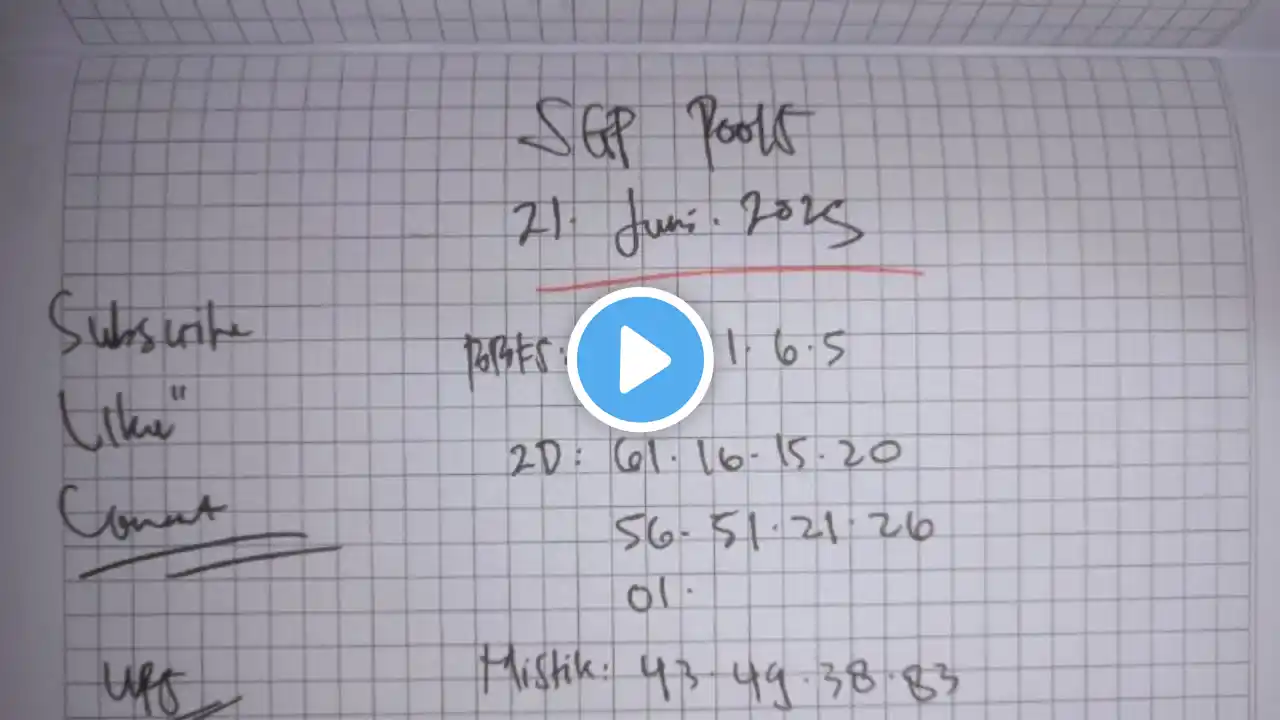 SGP Pools
21. Juni. 2025
Subscribe
BBFS: 1. 6. 5
Like"
2D: 61. 16. 15. 20
Coment
56. 51. 21. 26
01.
Mistik: 43. 49. 38. 83